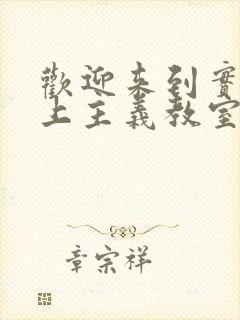 歡迎來到實
上主義教室
章宗祥